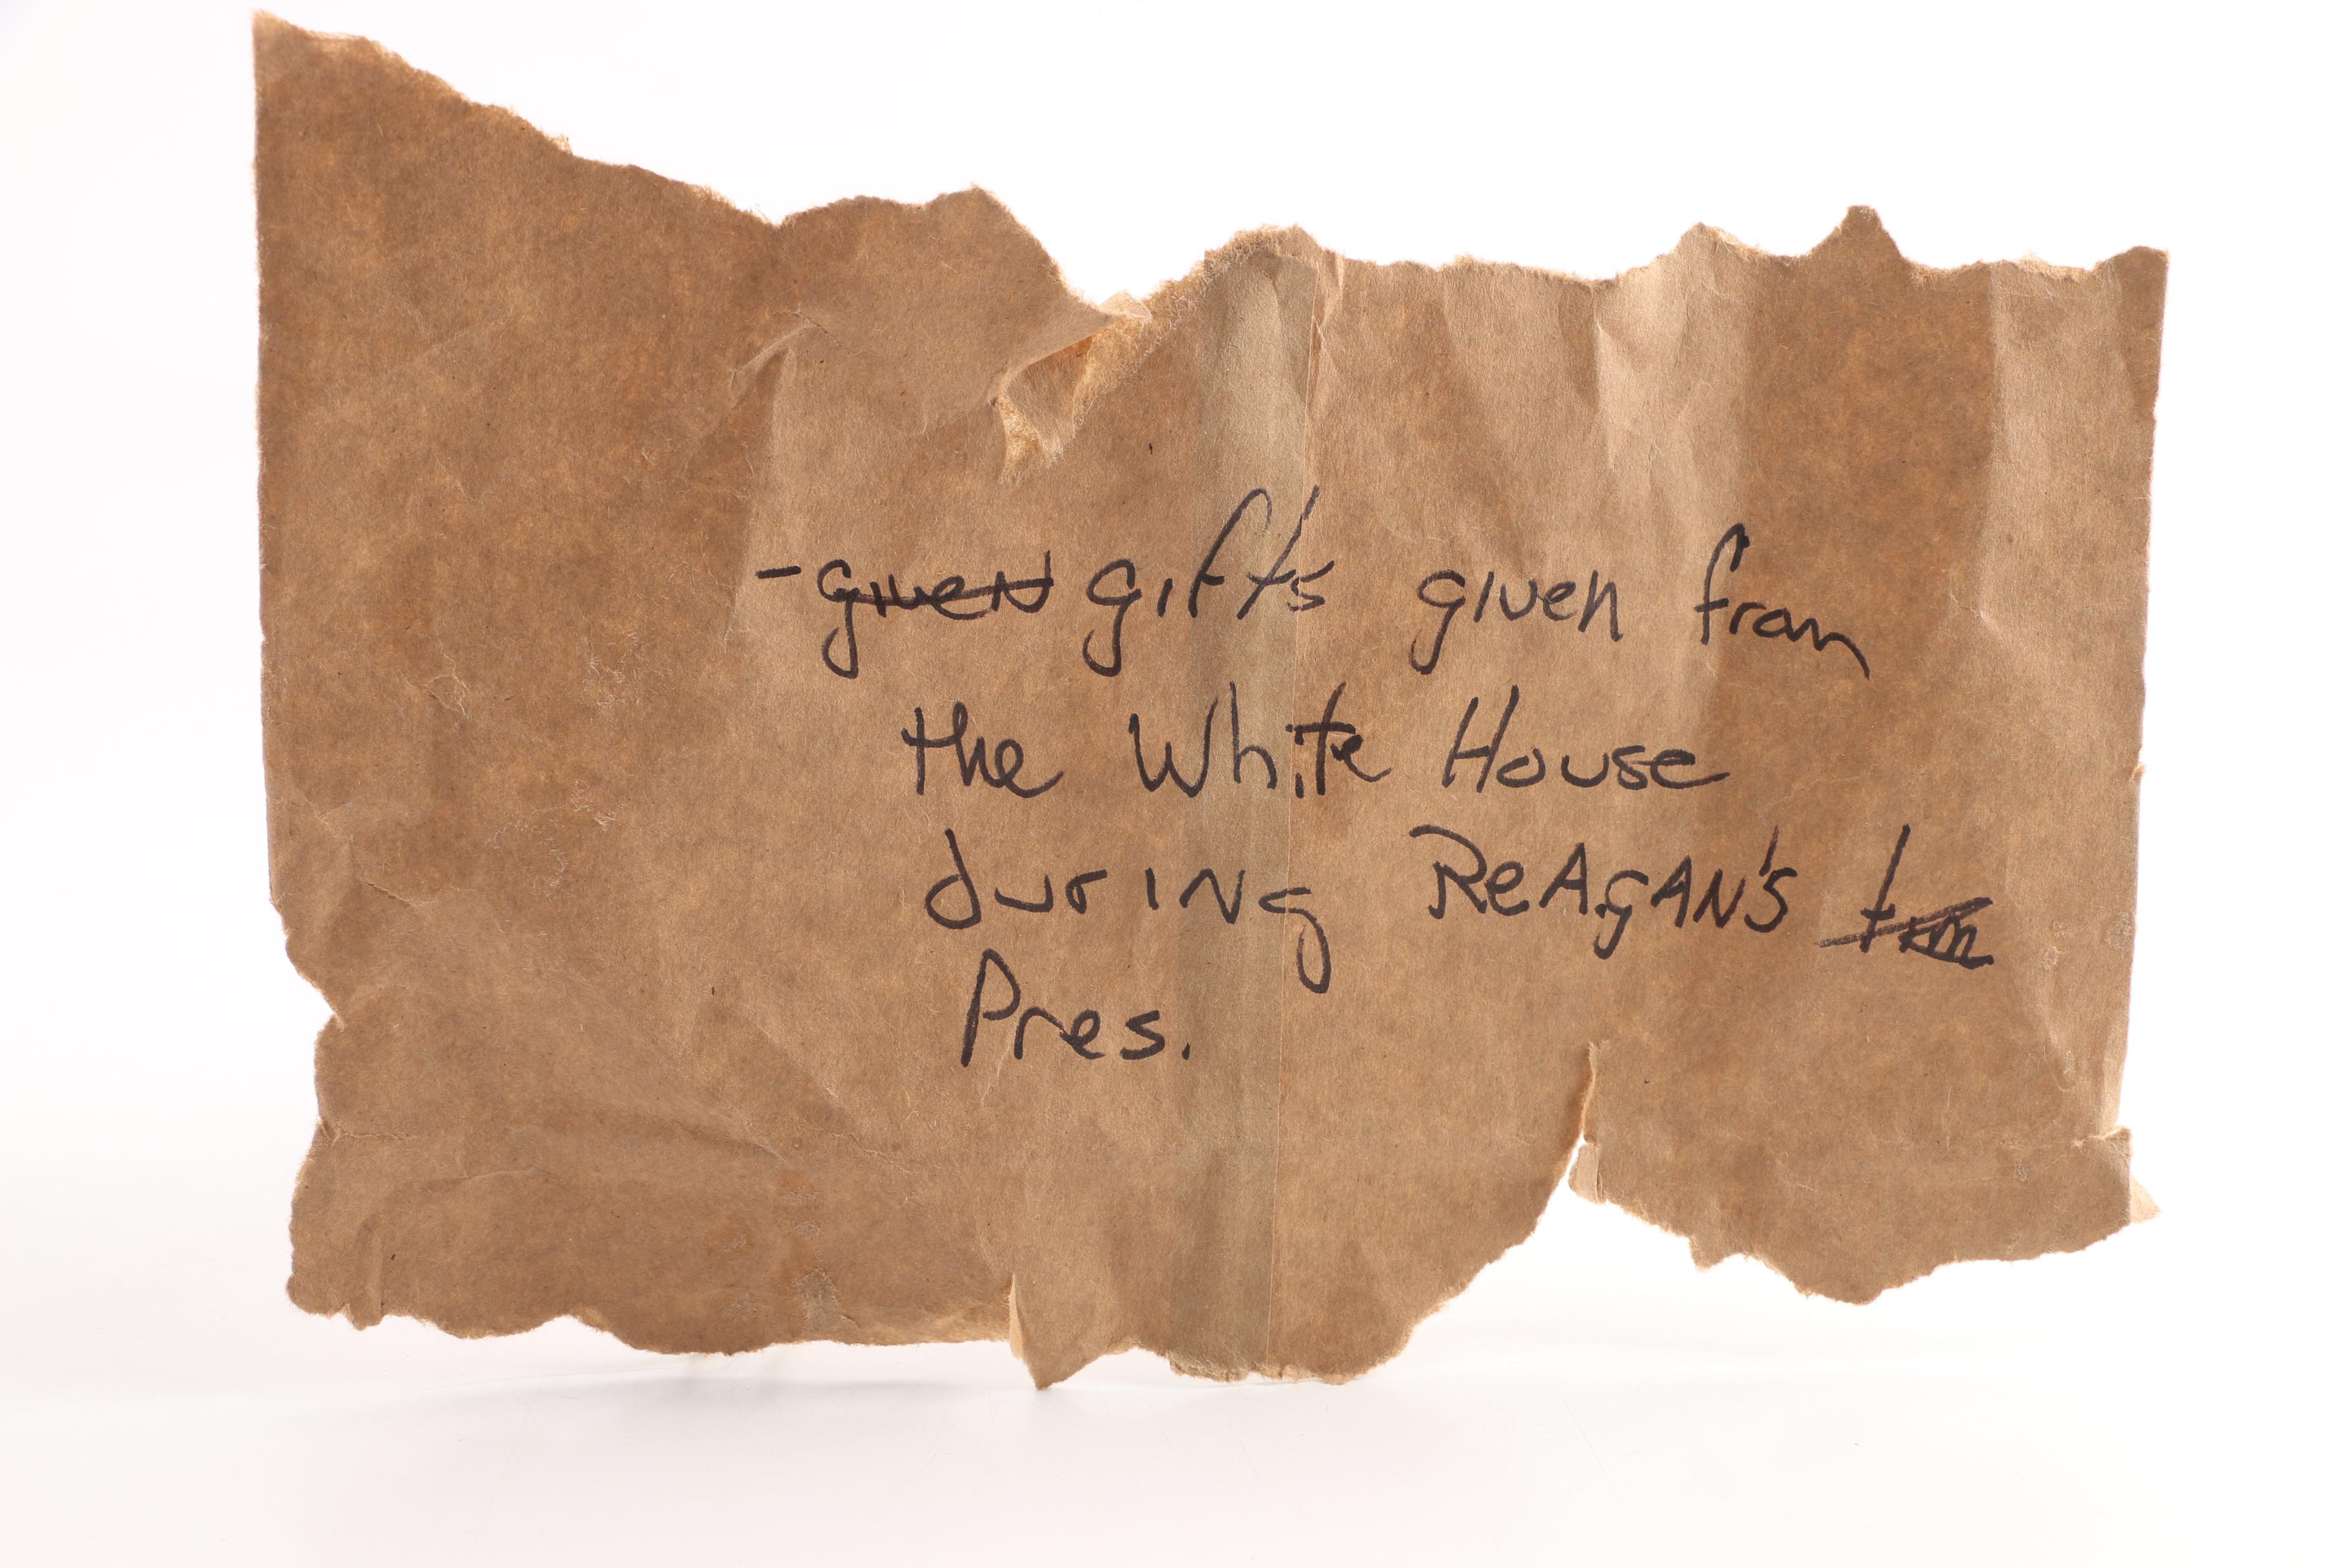 - given gifts given from
the White House
during ReAgAN's
Pres.